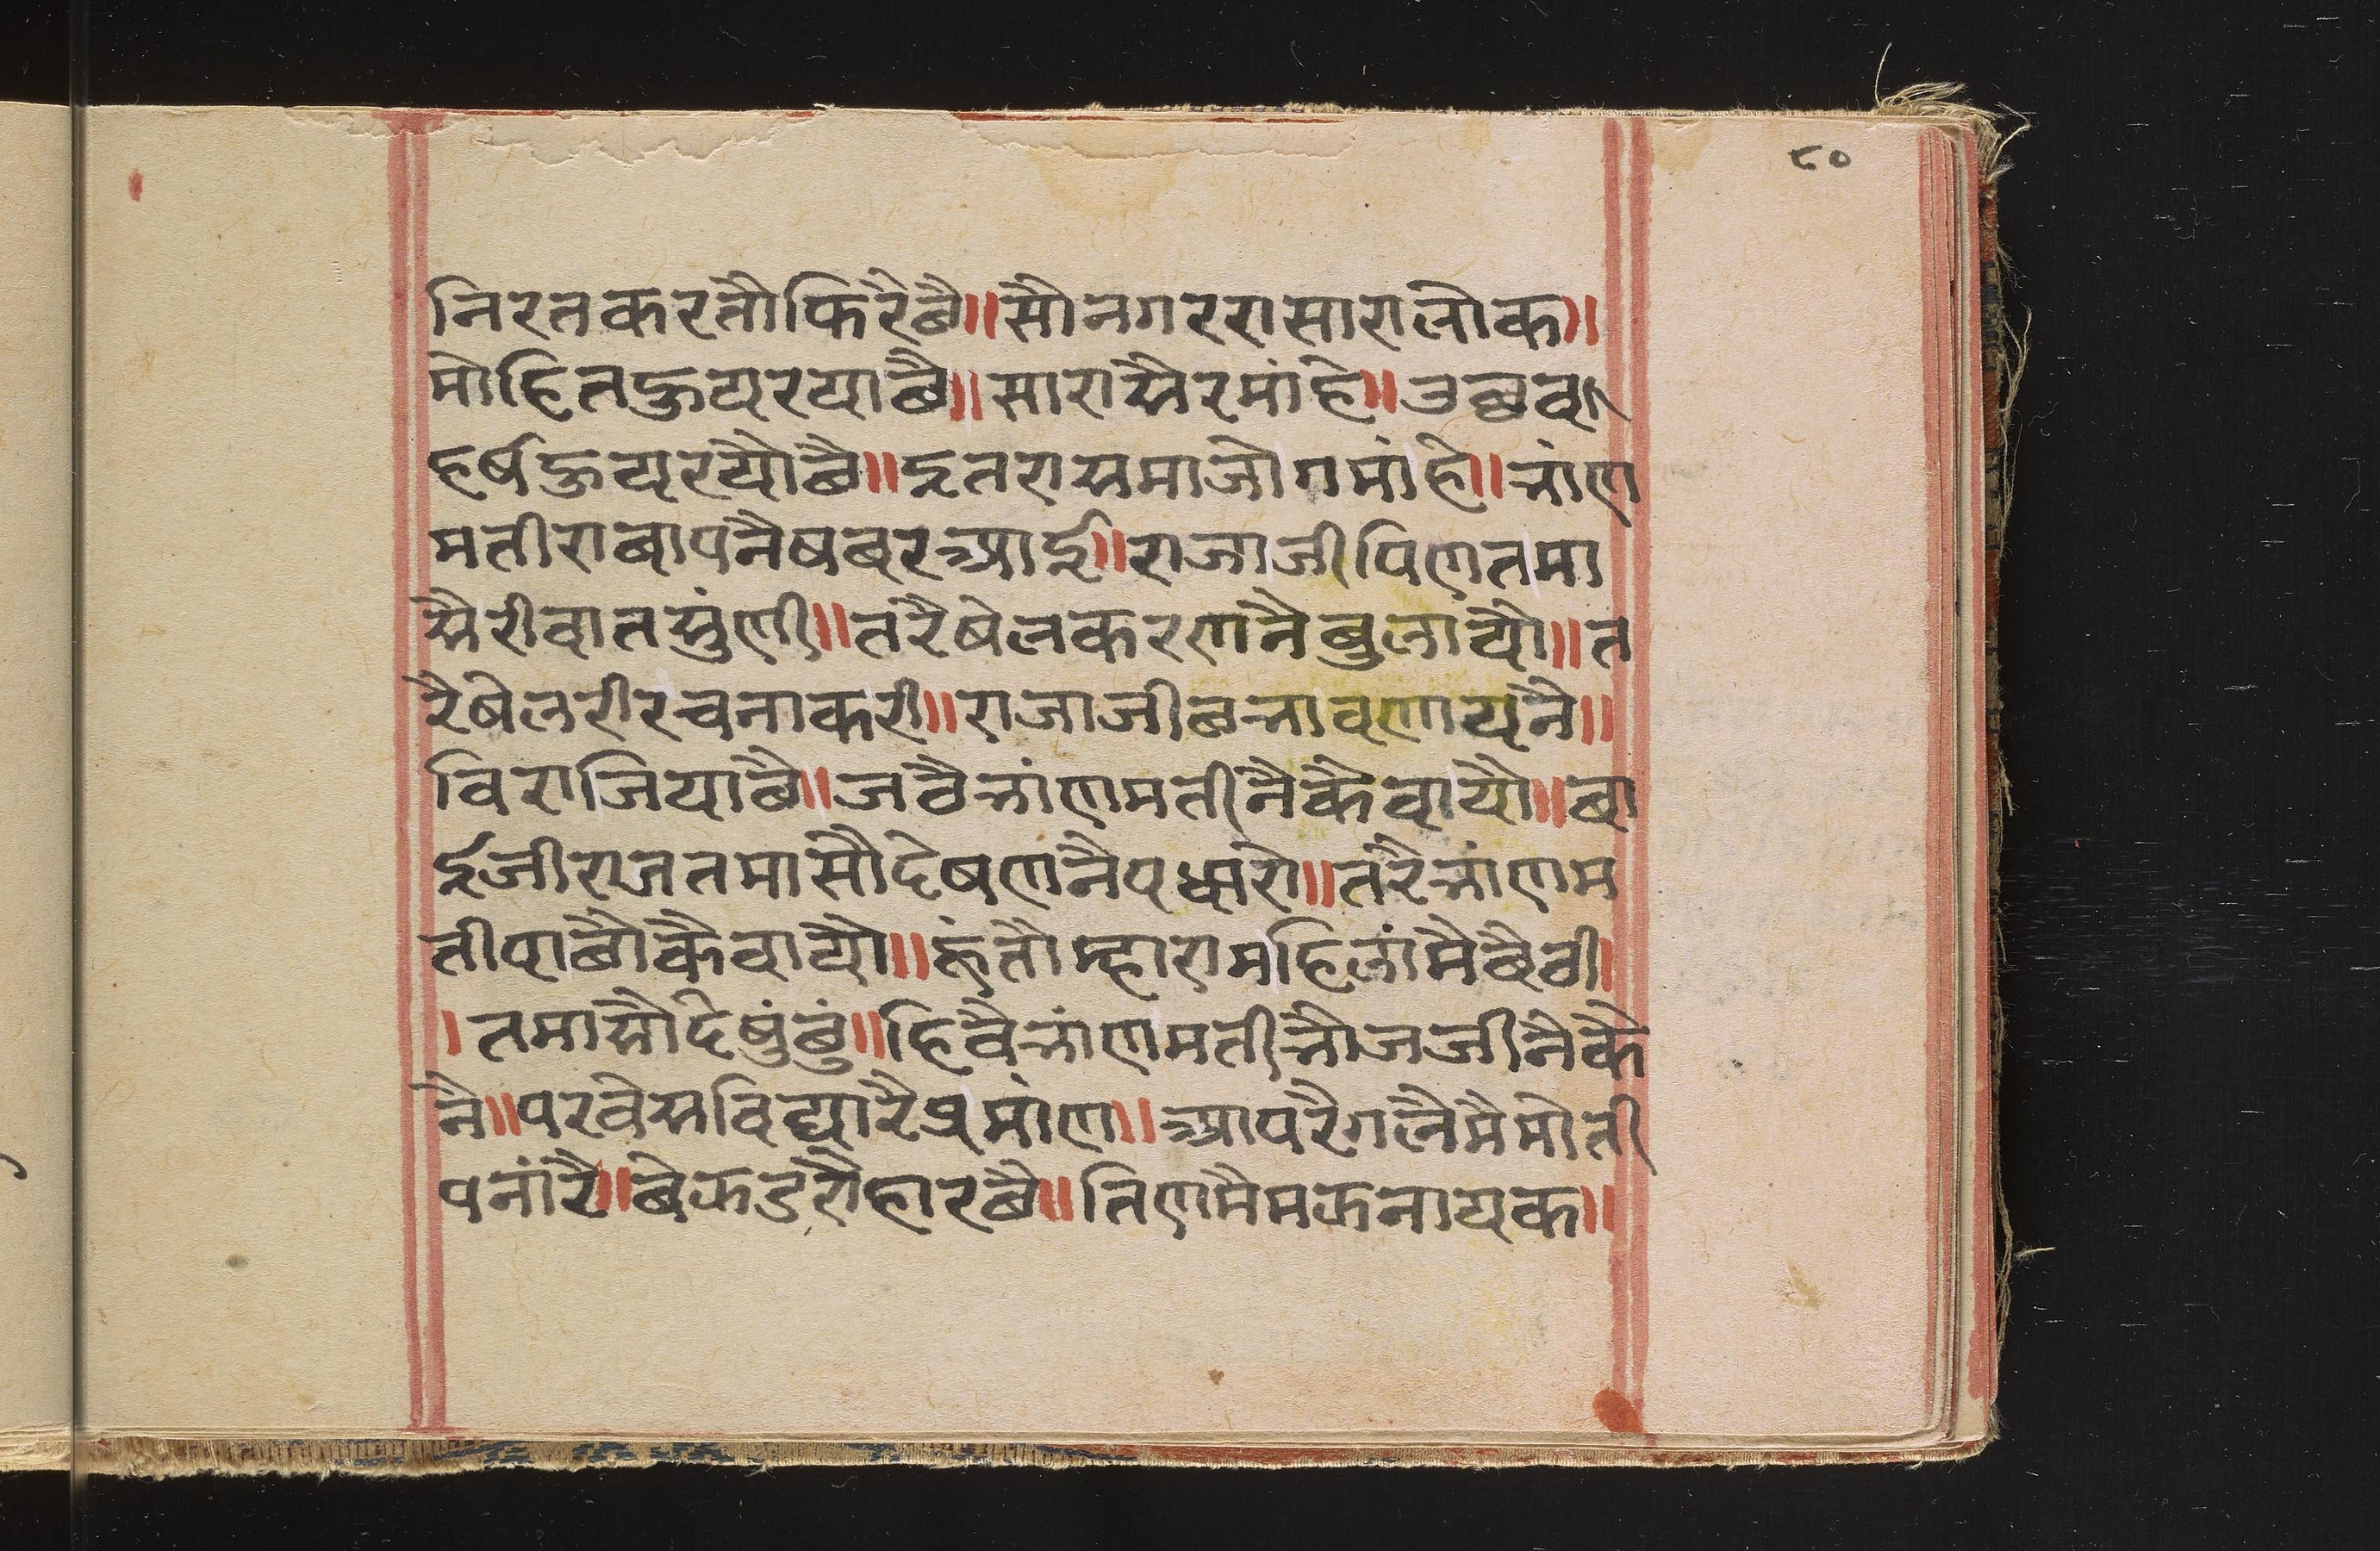 ८०
निरतकरतौफिरैछै॥सौनगररासारालोक॥
मोहितहुयरयाछै॥सारासैरमांहे॥उछव।
हर्षहुयरयौछै॥इतरासमाजोगमांहे॥नांण
मतीराबापनैषबरआई॥राजाजीपिणतमा
सैरीवातसुंणी॥तरैषेलकरणनैबुलायौ॥त
रैषेलरीरचनाकरी॥राजाजीछन्नावणायनै॥
विराजियाछै॥जठैनांणमतीनैकैवायौ॥बा
ईजीराजतमासौदेषणनैपधारो॥तरैनांणम
तीपाछौकैवायौ॥हूंतौम्हारामहिलांमैबैठी
।तमासौदेषुंछुं॥हिवैनांणमतीनौजजीनैकै
नै॥परवेसविद्यारैप्रमांण॥आपरैगलैमैमोती
पनांरै॥बेऊडरोहारछै॥तिणमैमऊनायक॥